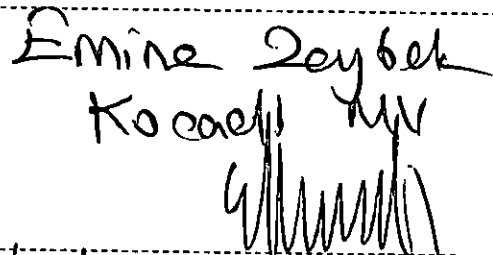 Emine Zeybek
Kocaeli MV